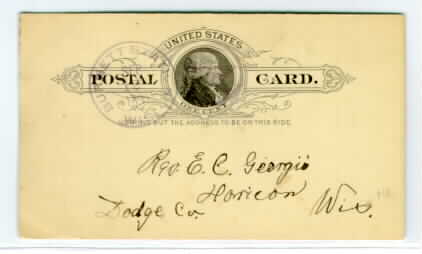 UNITED STATES
POSTAL CARD.
ONE CENT
NOTHING BUT THE ADDRESS TO BE ON THIS SIDE.
Rev E. C. Georgii
Horicon
Dodge Co. Wis.